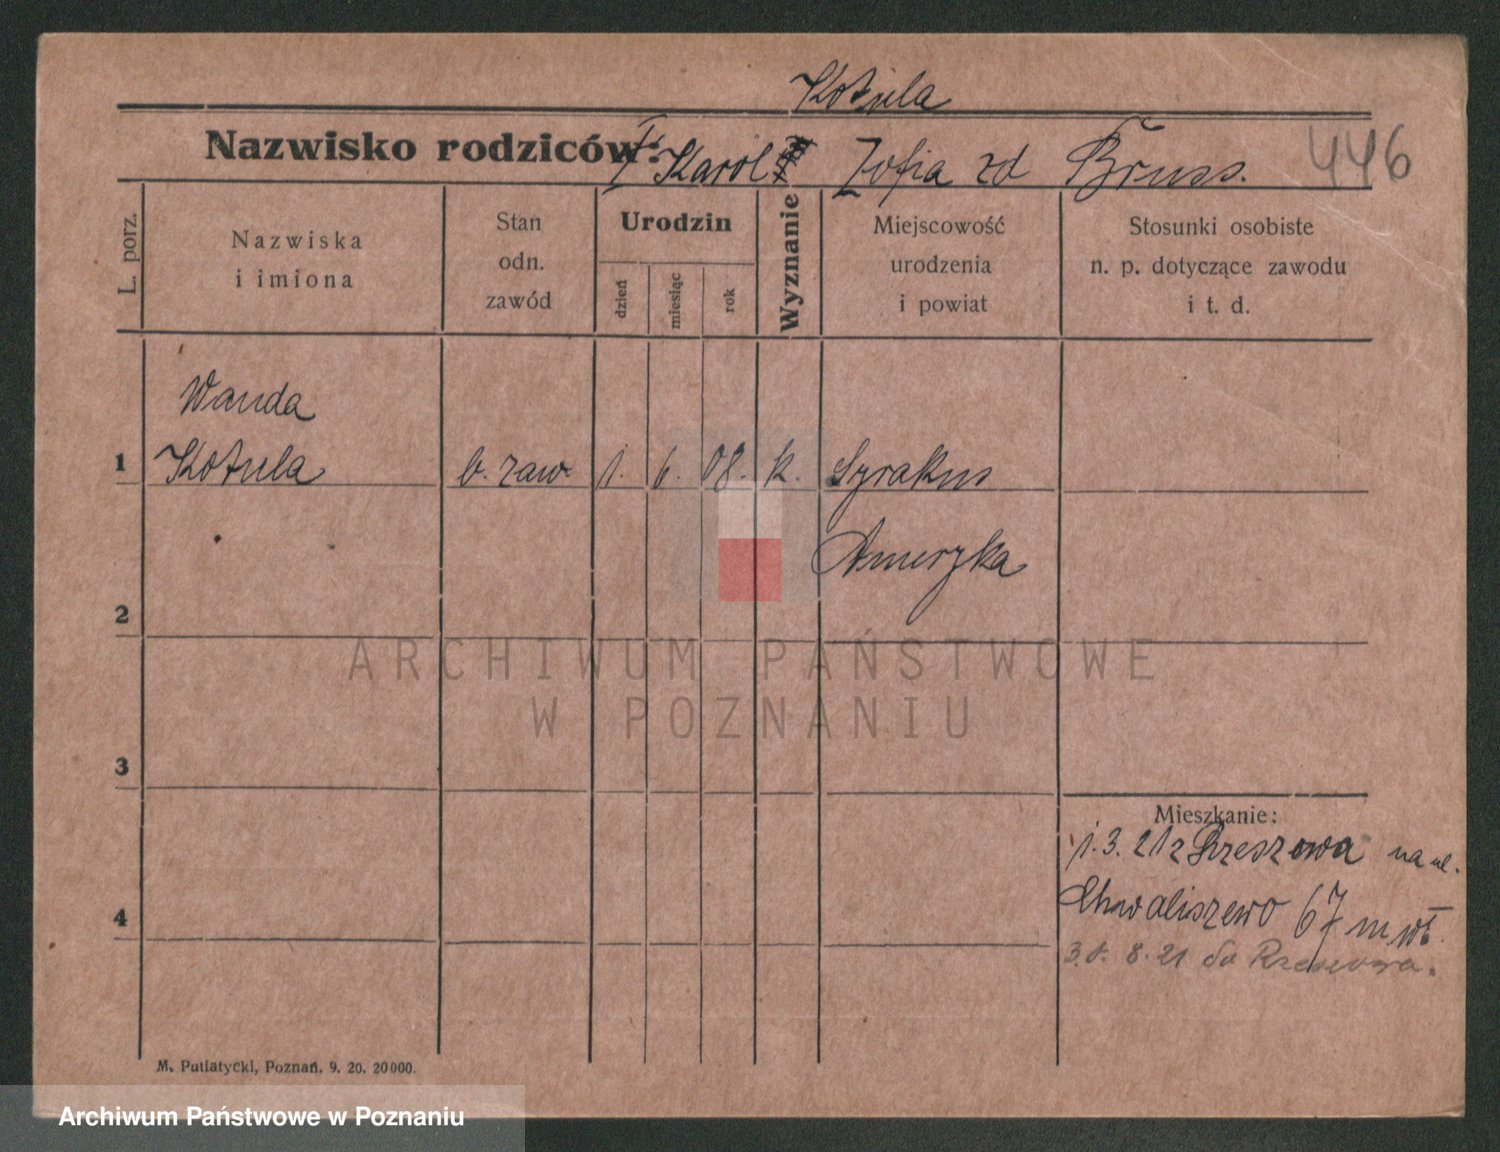 Kotula
Nazwisko rodziców: Karol Zofia zd Bruss. 446
L. porz.
Nazwiska
i imiona
Stan
odn.
zawód
Urodzin
dzień
miesiąc
rok
Wyznanie
Miejscowość
urodzenia
i powiat
Stosunki osobiste
n. p. dotyczące zawodu
i t. d.
Wanda
1 Kotula b. zaw. 1. 6. 08. k. Syrakus
Ameryka
2
3
4
Mieszkanie:
1.3.21 z Rzeszowa na ul.
Chwaliszewo 67 m wł.
8.21 do Rzeszowa.
ARCHIWUM PAŃSTWOWE
W POZNANIU
M. Putiatycki, Poznań. 9. 20. 20000.
Archiwum Państwowe w Poznaniu